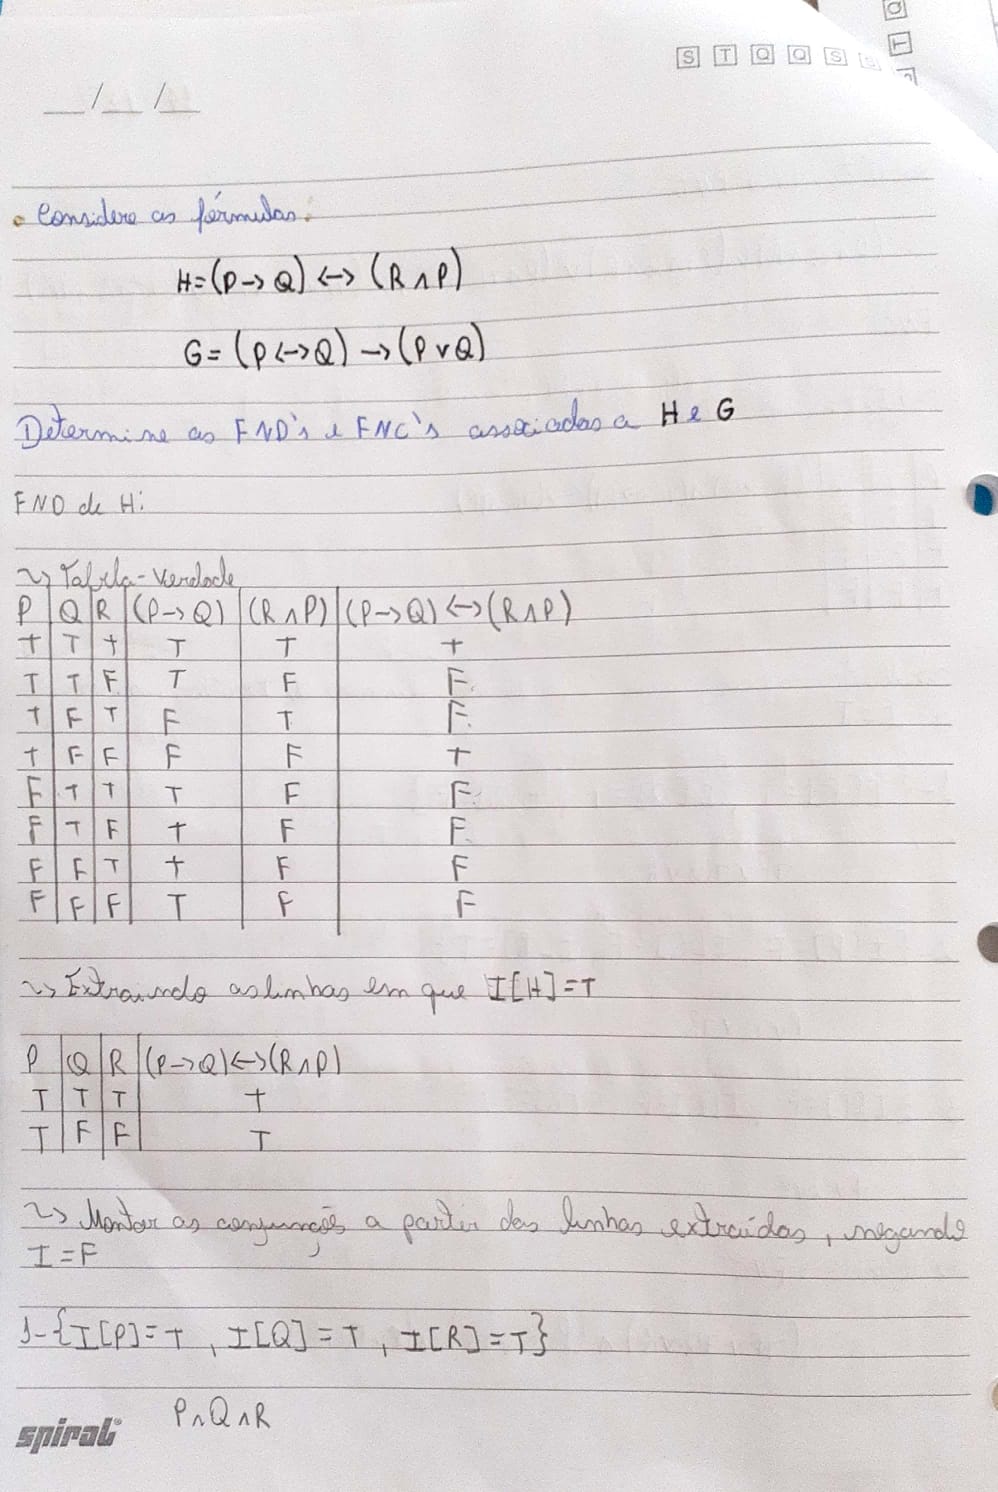 S T Q Q S S
__/__/__
• Considere as fórmulas:
H=(P→Q)↔(R∧P)
G=(P↔Q)→(P∨Q)
Determine as FND's e FNC's associadas a H e G
FND de H:
↝ Tabela-Verdade
P Q R (P→Q) (R∧P) (P→Q)↔(R∧P)
T T T T T T
T T F T F F
T F T F T F
T F F F F T
F T T T F F
F T F T F F
F F T T F F
F F F T F F
↝ Extraindo as linhas em que I[H]=T
P Q R (P→Q)↔(R∧P)
T T T T
T F F T
↝ Montar as conjunções a partir das linhas extraídas, negando
I=F
1-{I[P]=T, I[Q]=T, I[R]=T}
P∧Q∧R
spiral